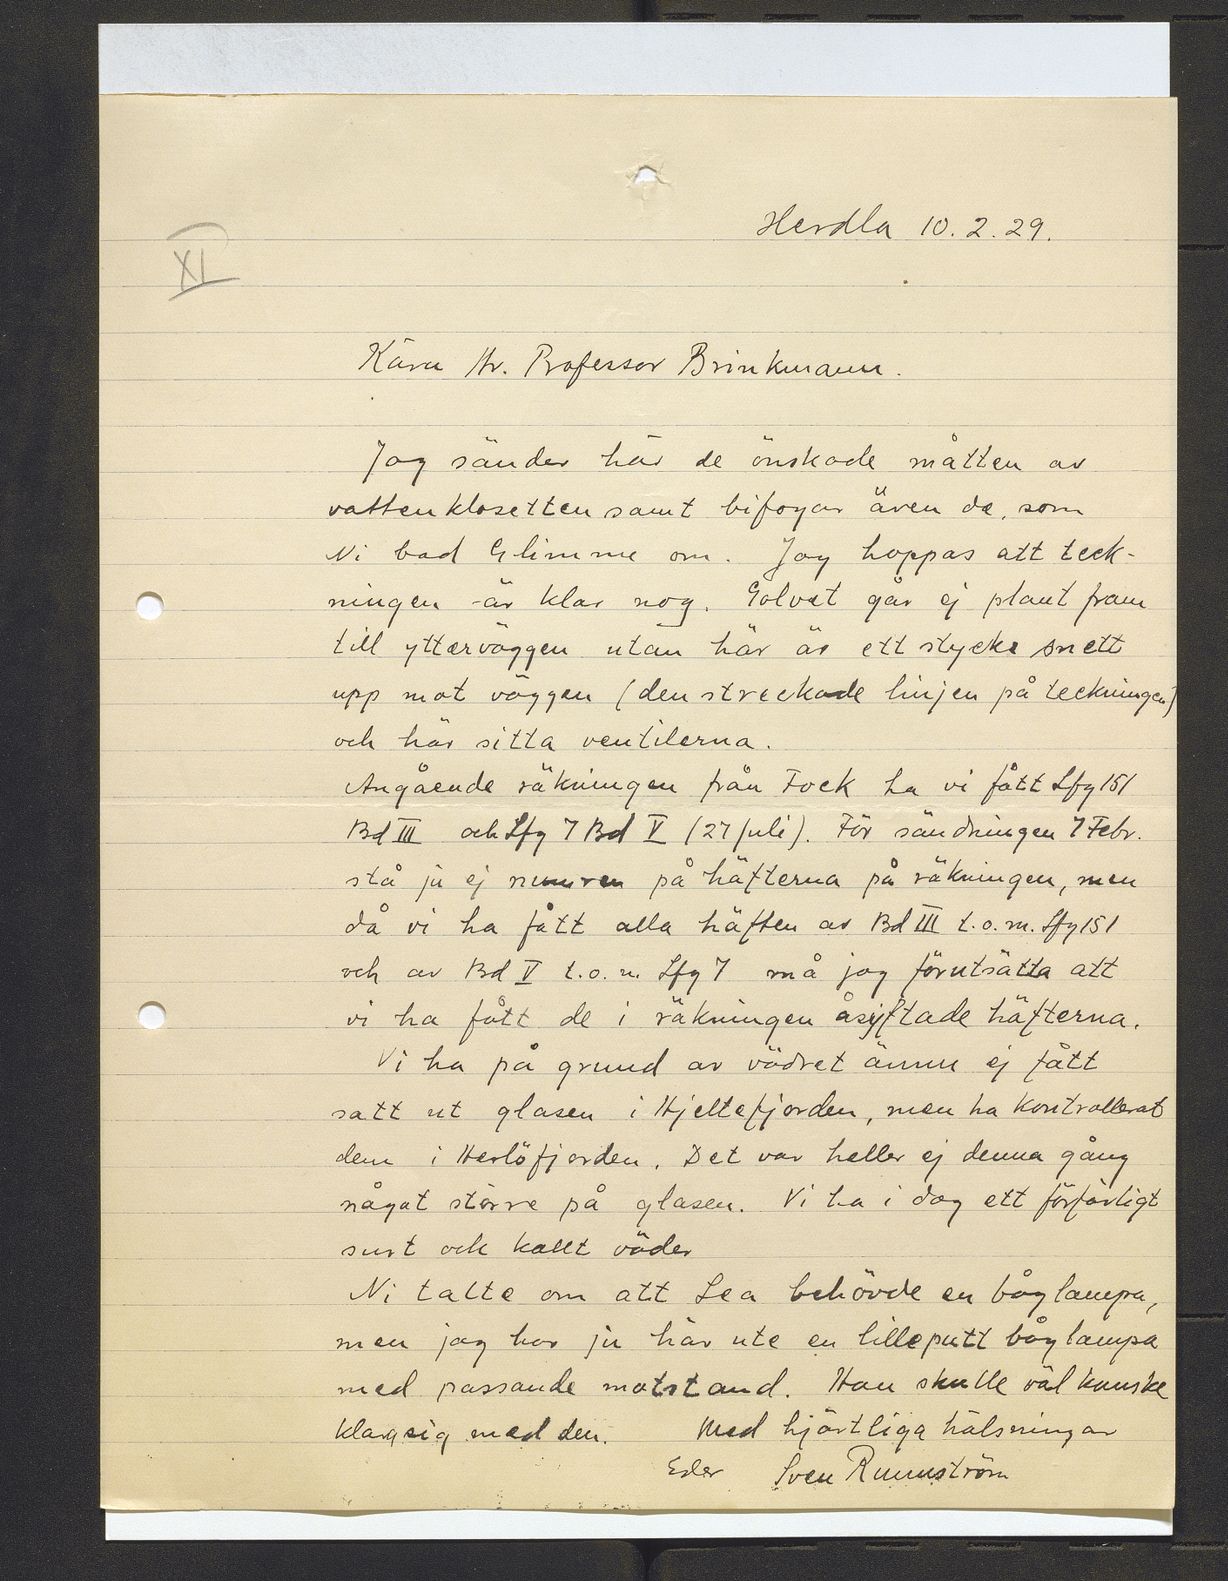 Herdla 10.2.29.
XI
Kära Hr. Professor Brinkmann.
Jag sänder här de önskade måtten av
vattenklosetten samt bifogar även de, som
Ni bad Glimme om. Jag hoppas att teck-
ningen är klar nog. Golvet går ej plant fram
till ytterväggen utan här är ett stycke snett
upp mot väggen (den streckade linjen på teckningen)
och här sitta ventilerna.
Angående räkningen från Fock ha vi fått Lfg 151
Bd III och Lfg 7 Bd V (27 juli). För sändningen 7 Febr.
stå ju ej numren på häfterna på räkningen, men
då vi ha fått alla häften av Bd III t.o.m. Lfg 151
och av Bd V t.o.m. Lfg 7 må jag förutsätta att
vi ha fått de i räkningen åsyftade häfterna.
Vi ha på grund av vädret ännu ej fått
satt ut glasen i Hjeltefjorden, men ha kontrollerat
dem i Herlöfjorden. Det var heller ej denna gång
något större på glasen. Vi ha i dag ett förfärligt
surt och kallt väder
Ni talte om att Lea behövde en båglampa,
men jag har ju här ute en lilleputt båglampa
med passande motstand. Han skulle väl kanske
klara sig med den. Med hjärtliga hälsningar
Eder Sven Runnström